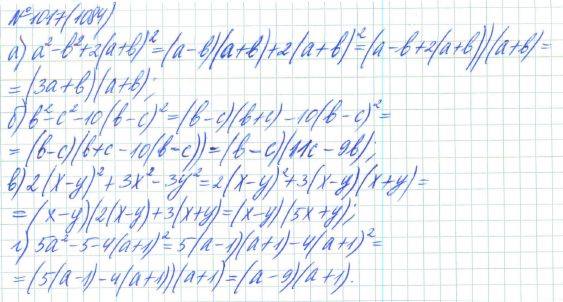 № 1017(1084)
а) a²-b²+2(a+b)²=(a-b)(a+b)+2(a+b)²=(a-b+2(a+b))(a+b)=
=(3a+b)(a+b);
б) b²-c²-10(b-c)²=(b-c)(b+c)-10(b-c)²=
=(b-c)(b+c-10(b-c))=(b-c)(11c-9b);
в) 2(x-y)²+3x²-3y²=2(x-y)²+3(x-y)(x+y)=
=(x-y)(2(x-y)+3(x+y)=(x-y)(5x+y);
г) 5a²-5-4(a+1)²=5(a-1)(a+1)-4(a+1)²=
=(5(a-1)-4(a+1))(a+1)=(a-9)(a+1).